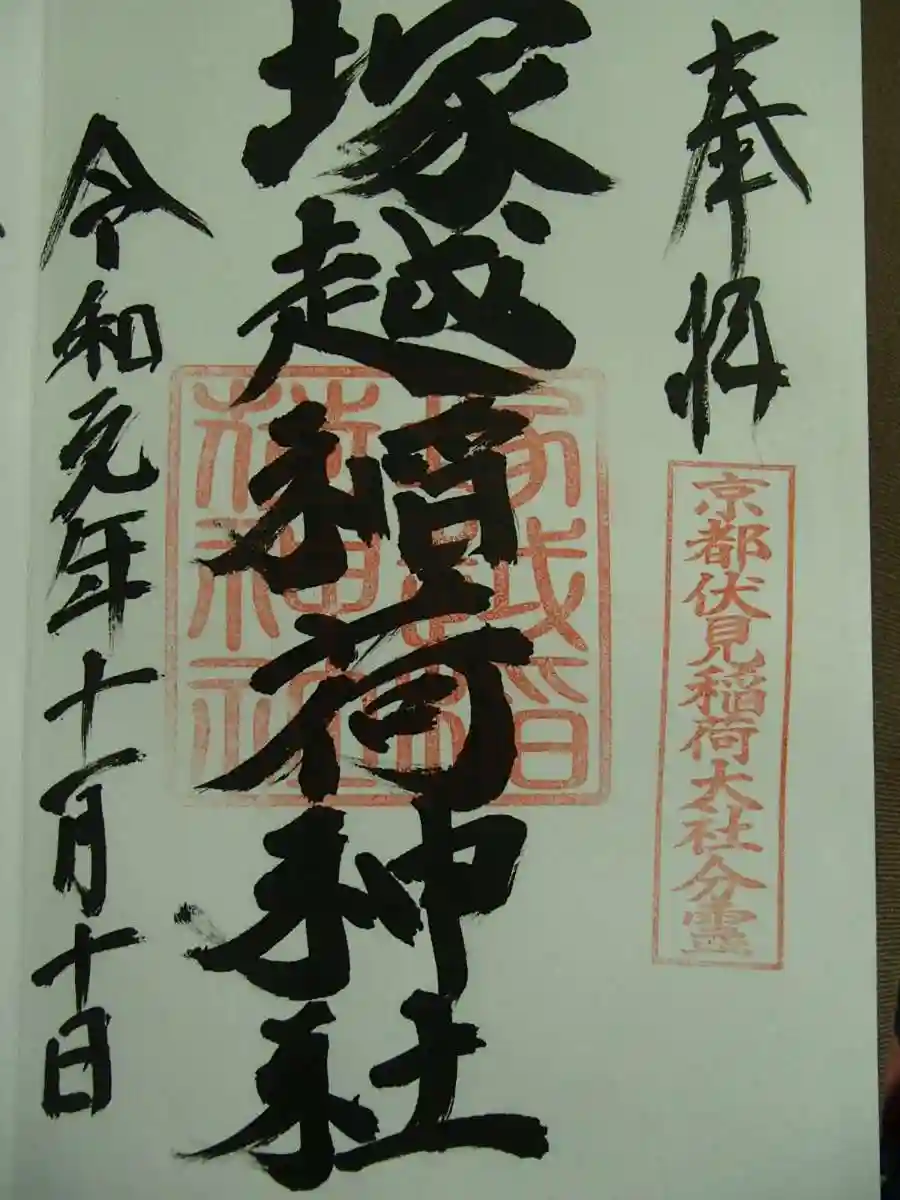 奉拝
京都伏見稲荷大社分霊
塚越稲荷神社
塚越稲
荷神社
令和元年十一月十日